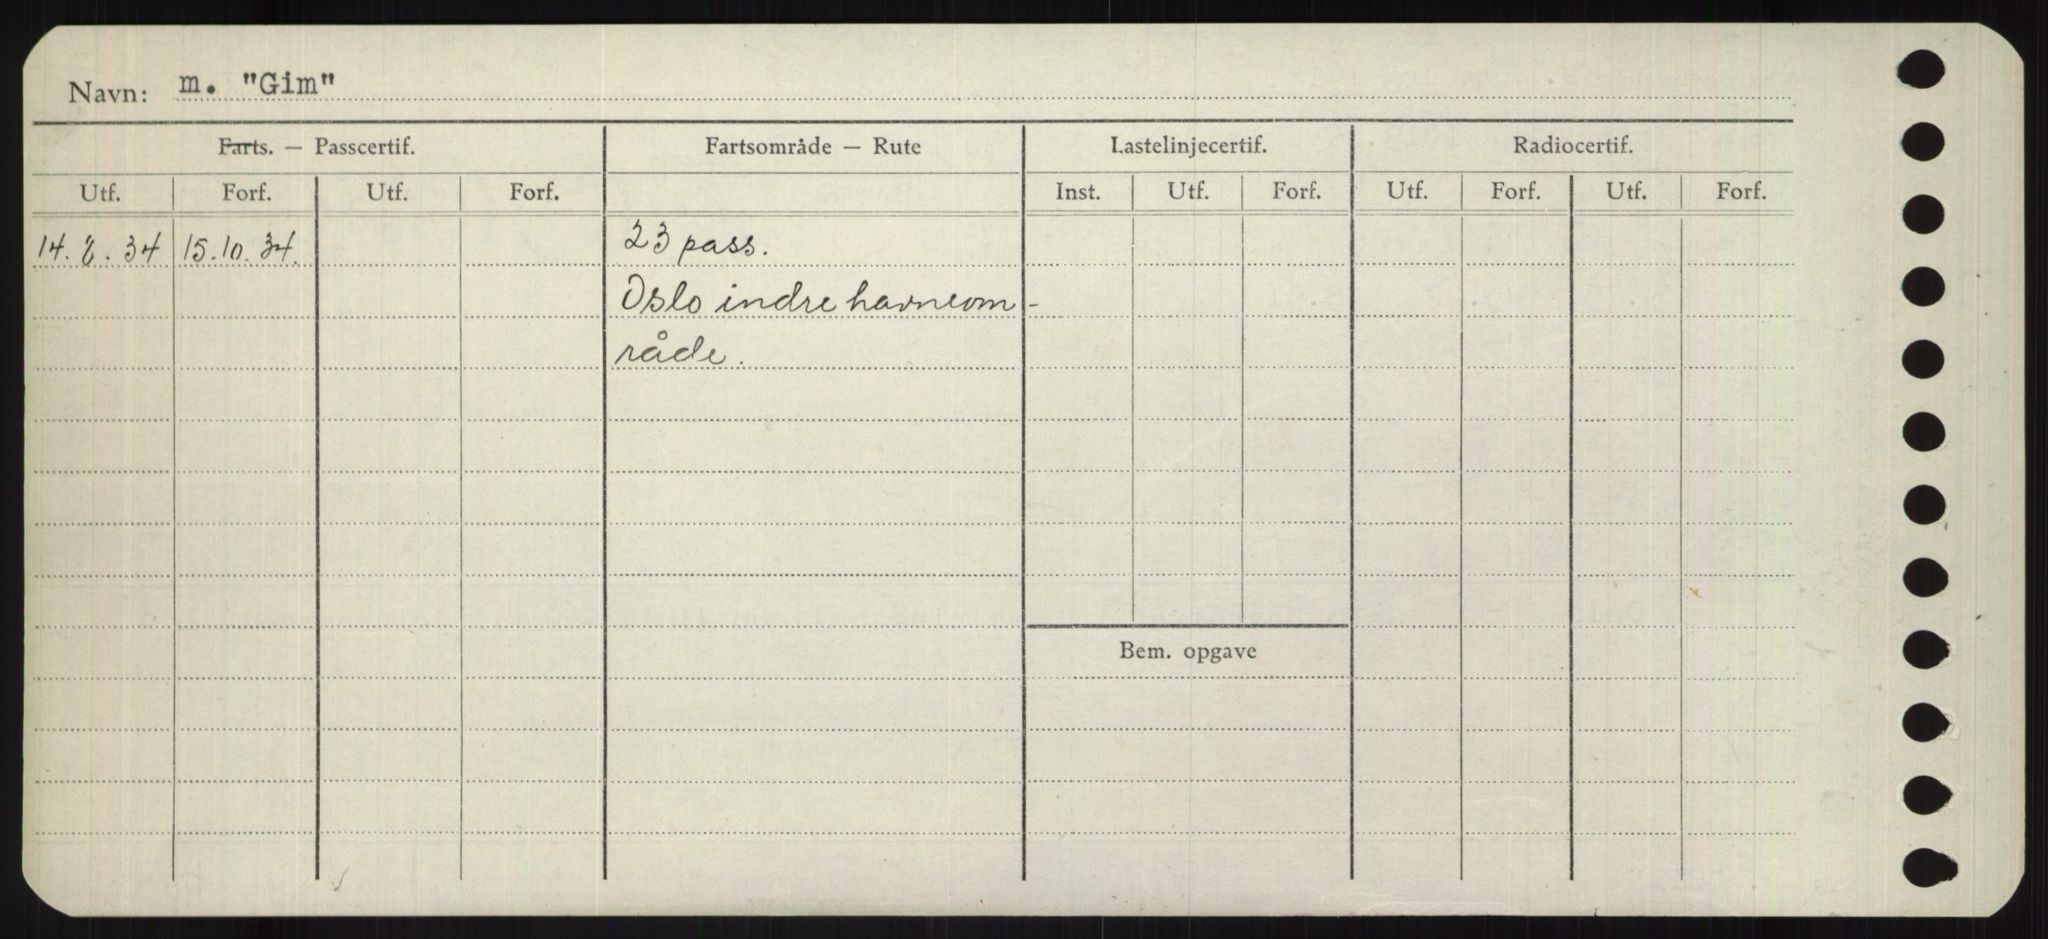 Navn: m. "Gim"
Farts. — Passcertif. Fartsområde — Rute Lastelinjecertif. Radiocertif.
Utf. Forf. Utf. Forf. Inst. Utf. Forf. Utf. Forf. Utf. Forf.
14. 8. 34 15.10.34. 23 pass.
Oslo indre havneom-
råde.
Bem. opgave